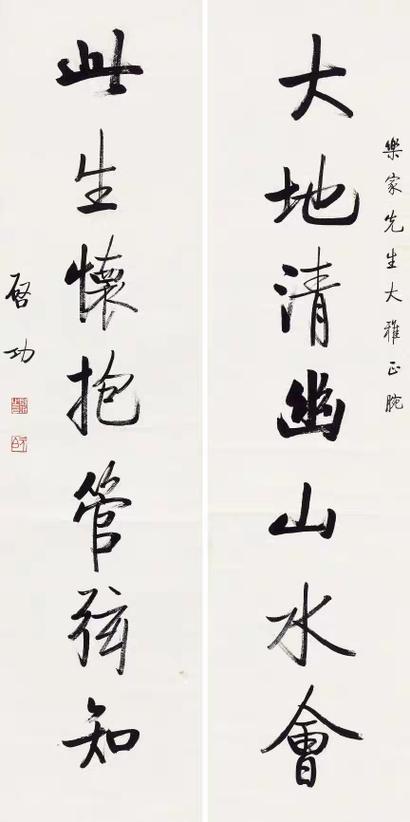 樂家先生大雅正腕
大地清幽山水會
此生懷抱管弦知
啓功